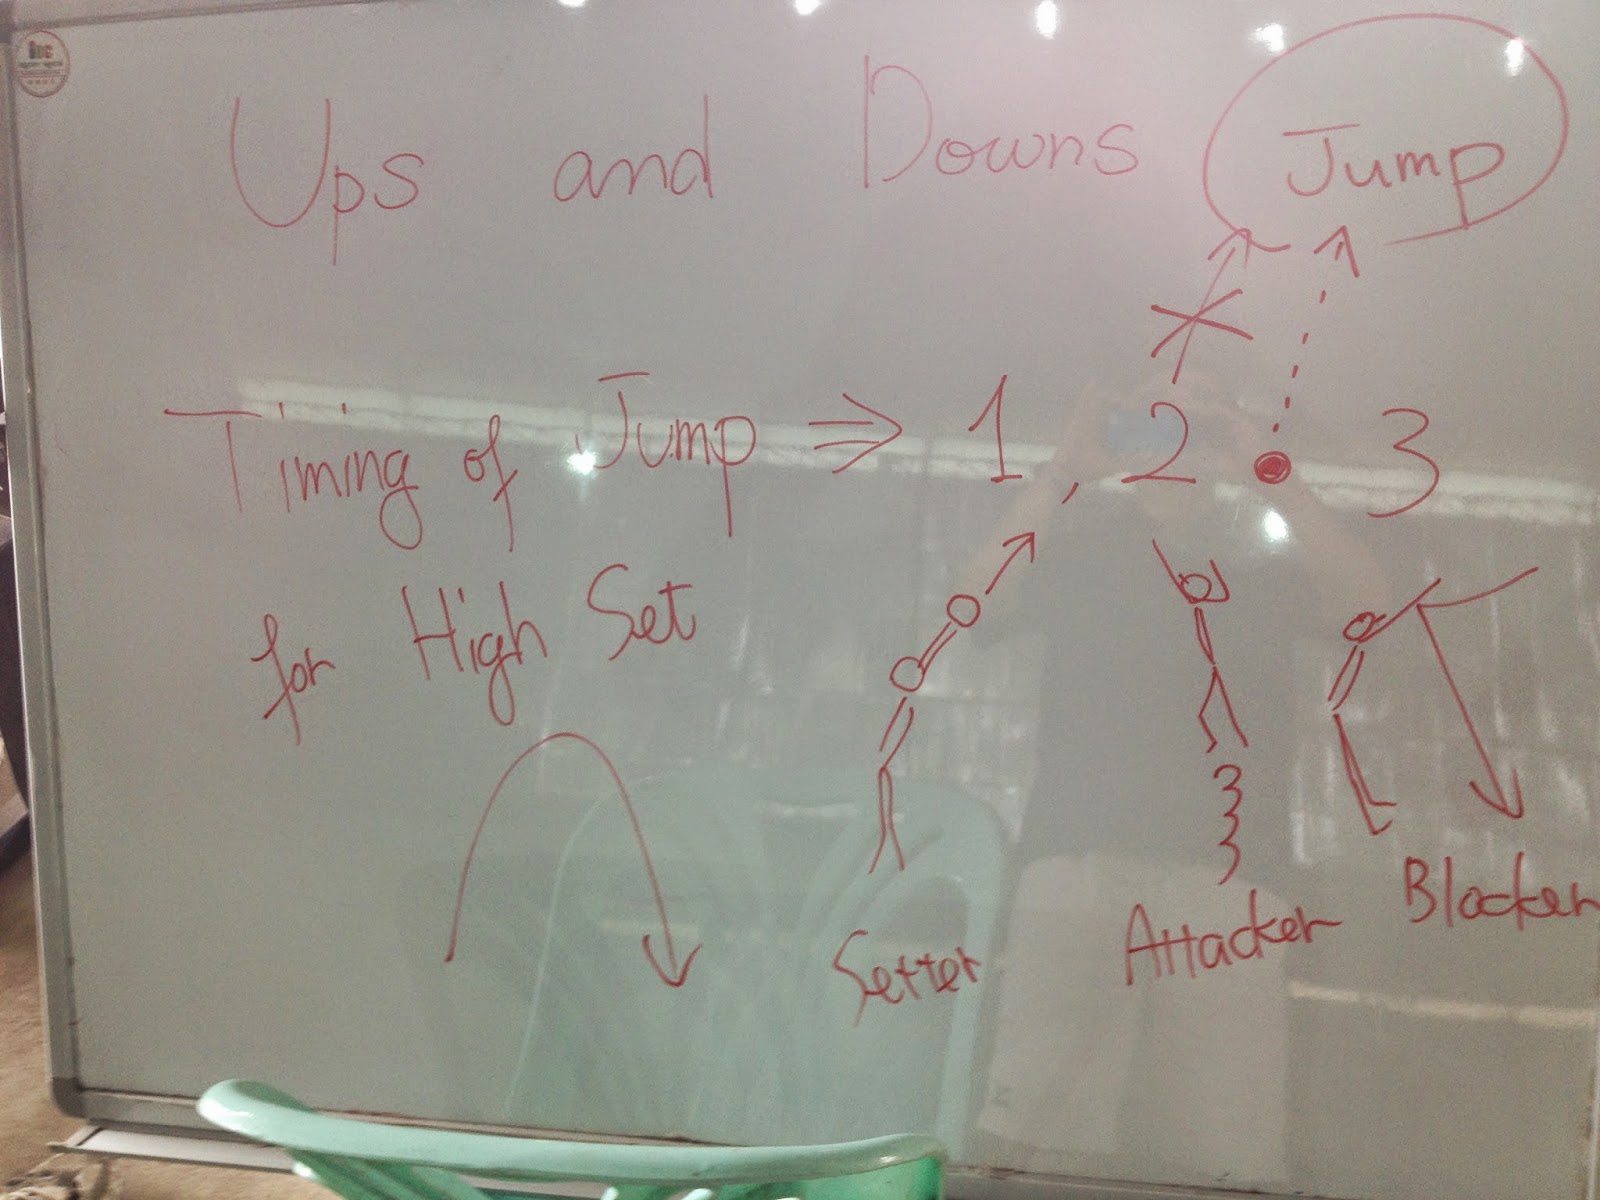 Ups and Downs Jump
Timing of Jump ⇒ 1, 2 • 3
for High Set
Setter Attacker Blocker